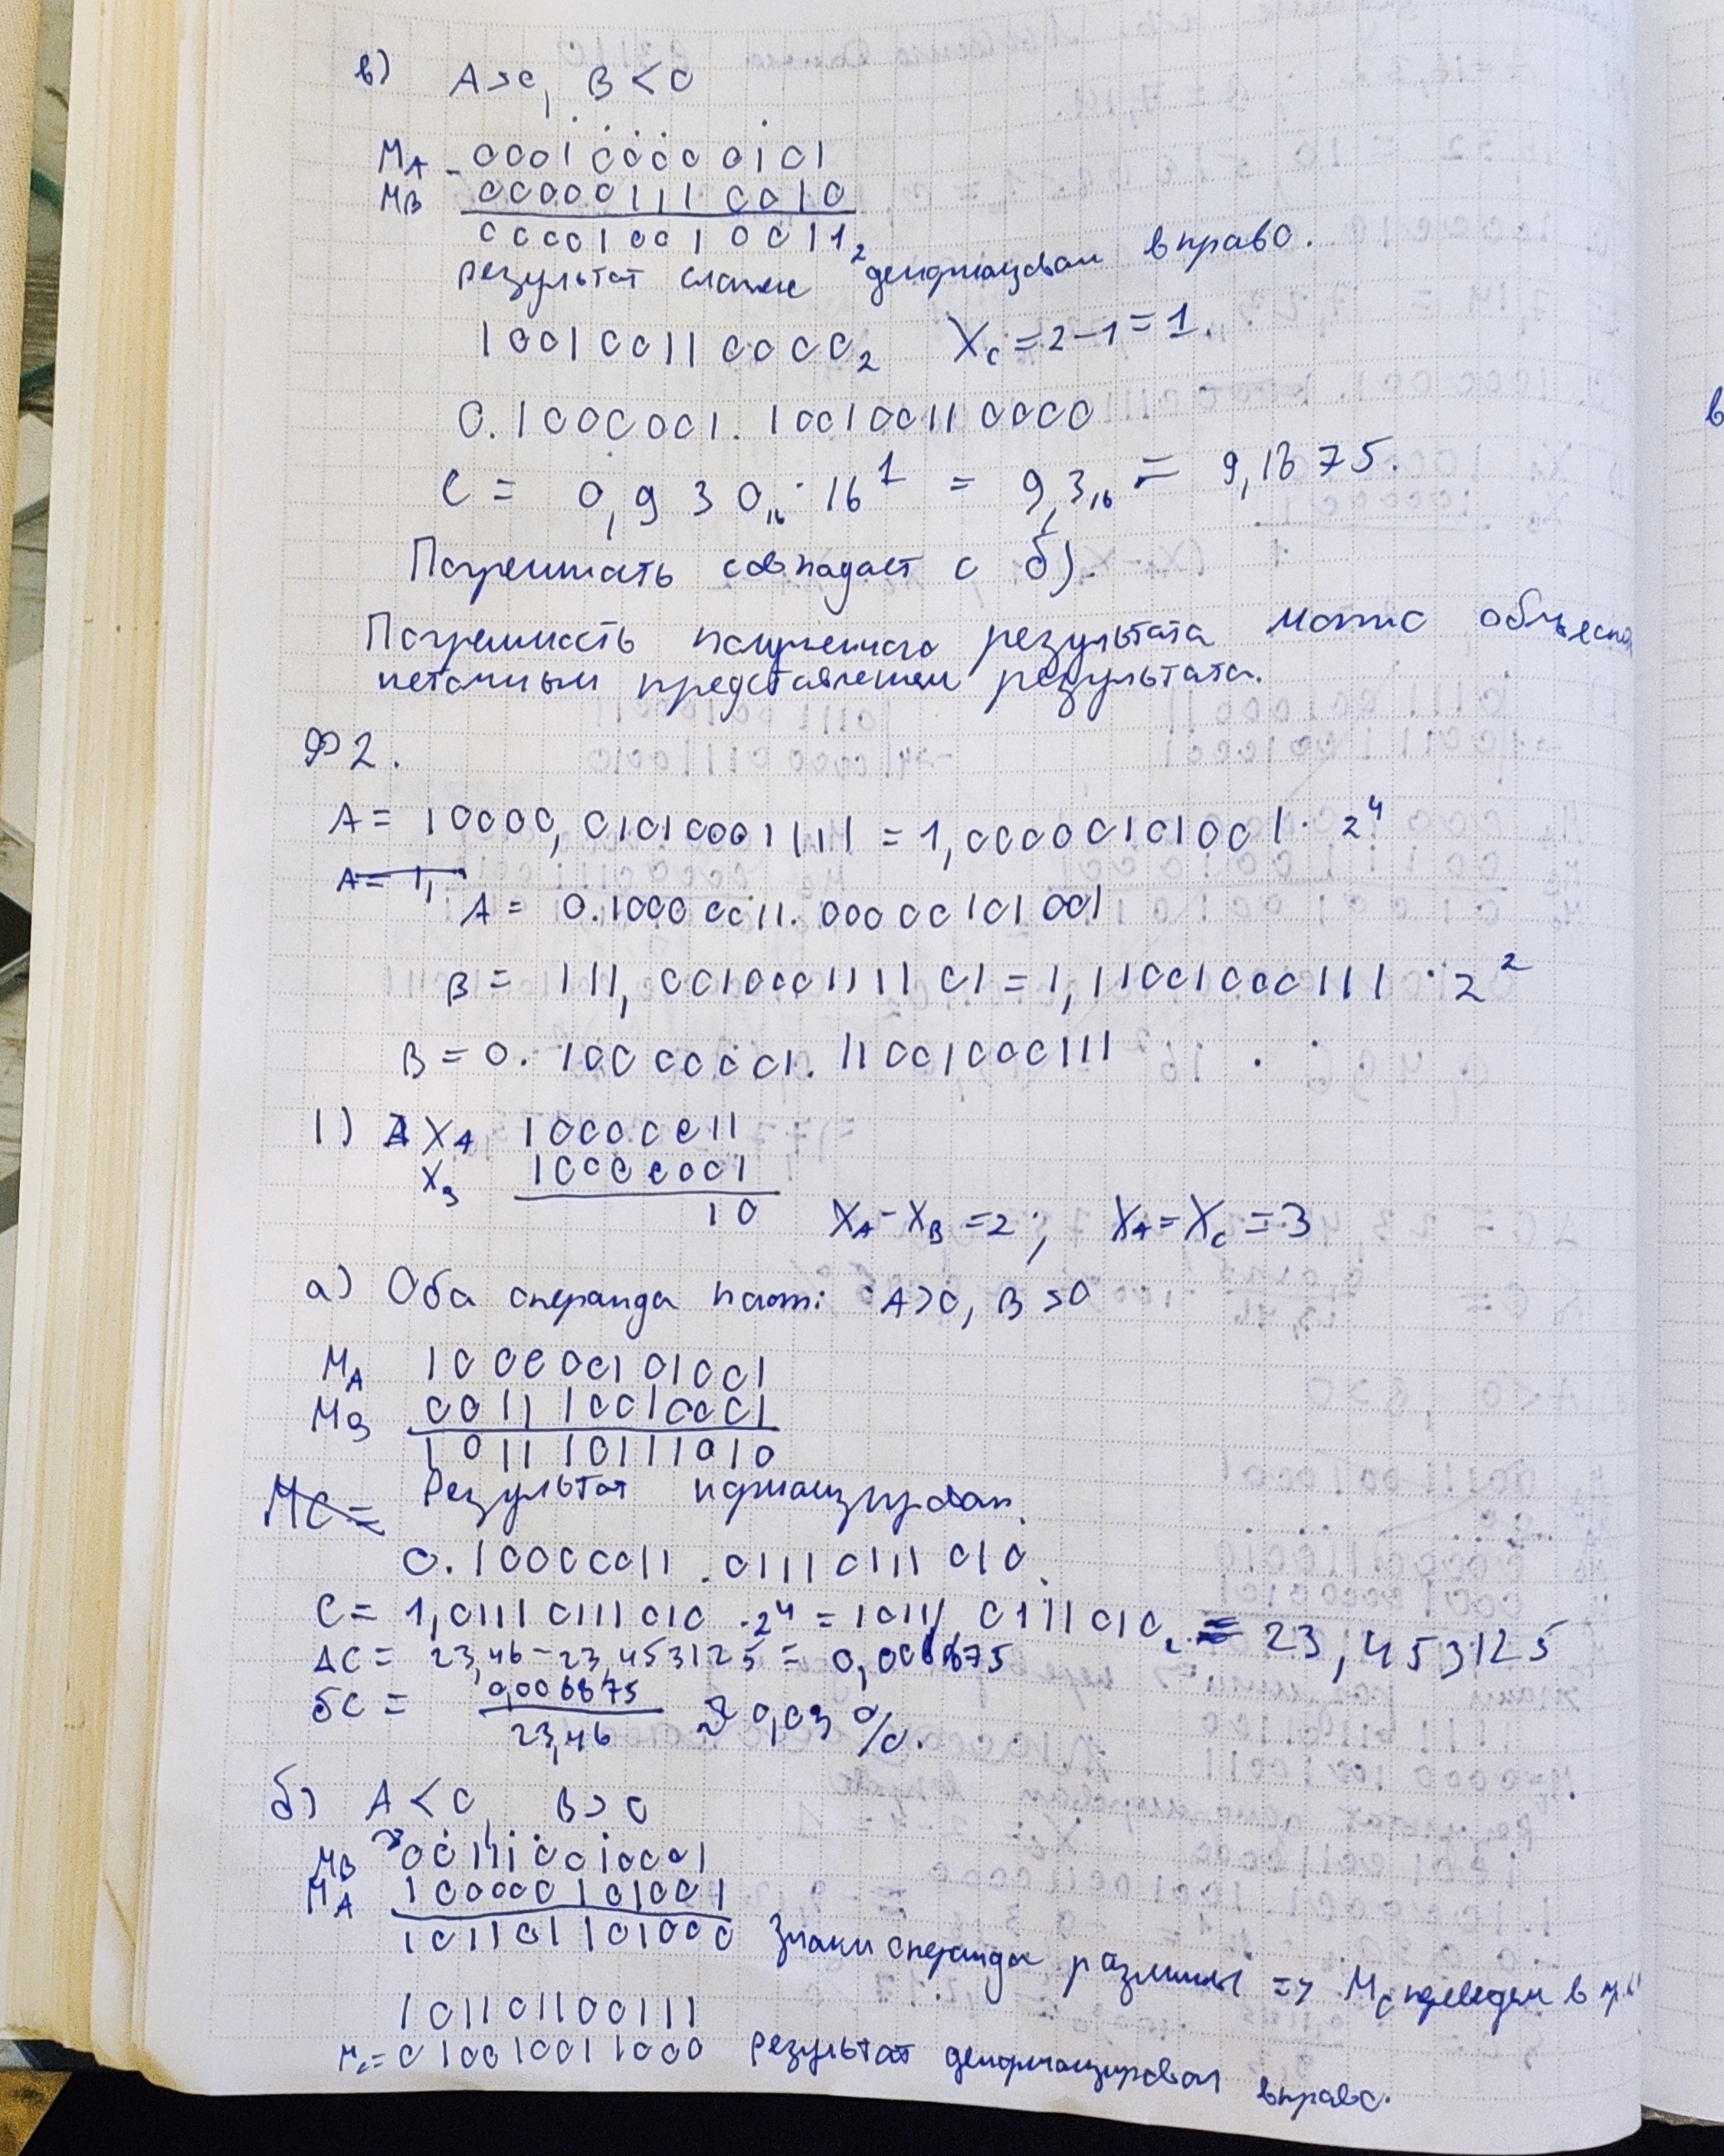 в) A>0, B<0
MA - 000100000101
MB 000001110010
000010010011₂
результат сложен денормализован вправо.
100100110000₂ Xc = 2-1 = 1.
0.1000001.100100110000
C = 0,930₁₆ · 16¹ = 9,3₁₆ = 9,1875.
Погрешность совпадает с б).
Погрешность полученного результата можно объяснить
неточным представлением результата.
Ф2.
A = 10000,01010001111 = 1,00000101001 · 2⁴
A = 1,
A = 0.10000011.00000101001
B = 111,001000111101 = 1,11001000111 · 2²
B = 0.10000001.11001000111
1) XA 10000011
XB 10000001
10 XA - XB = 2; XA = XC = 3
а) Оба операнда полож: A>0, B>0
MA 100000101001
MB 001110010001
101110111010
MC = Результат нормализован.
0.10000011.01110111010.
C = 1,01110111010 · 2⁴ = 10111,0111010₂ = 23,453125
ΔC = 23,46 - 23,453125 = 0,006875
δC = 0,006875
23,46 ≈ 0,03 %.
б) A<0, B>0
MB 001110010001
MA 100000101001
101101101000 Знаки операнда различны => MC переведем в
101101100111
MC = 010010011000 результат денормализирован вправо.